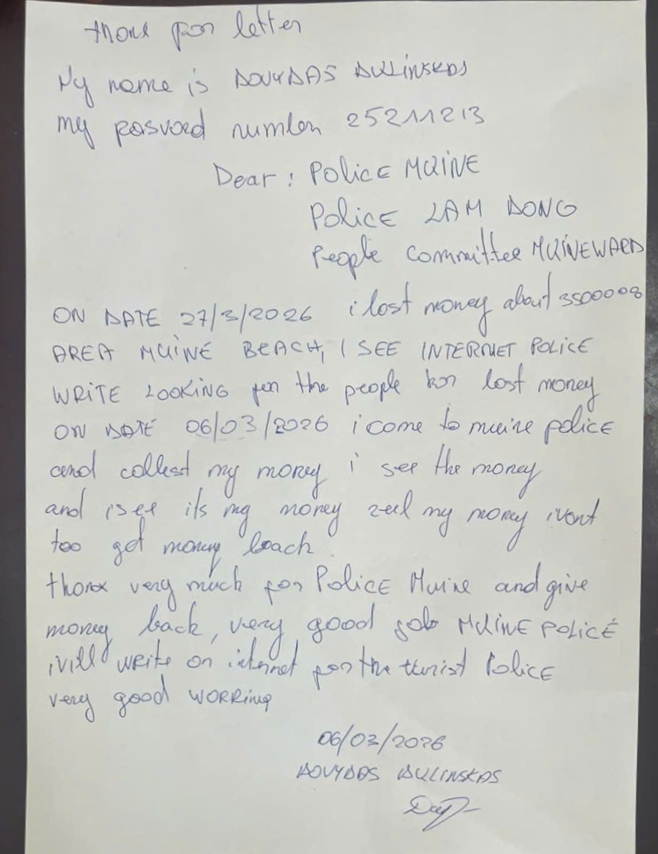 thank for letter
My name is DOVYDAS DULINSKAS
my pasvord number 25211213
Dear : Police MUINE
Police LAM DONG
People Committee MUINEWARD
ON DATE 27/3/2026 i lost money about
AREA MUINE BEACH, I SEE INTERNET POLICE
WRITE LOOKING for the people lost money
ON DATE 06/03/2026 i come to muine police
and collest my money i see the money
and i see its my money my money ivont
too get money back
thanx very much for Police Muine and give
money back, very good job MUINE POLICE
ivill write on internet for the turist Police
very good WORRing
06/03/2026
DOVYDAS DULINSKAS